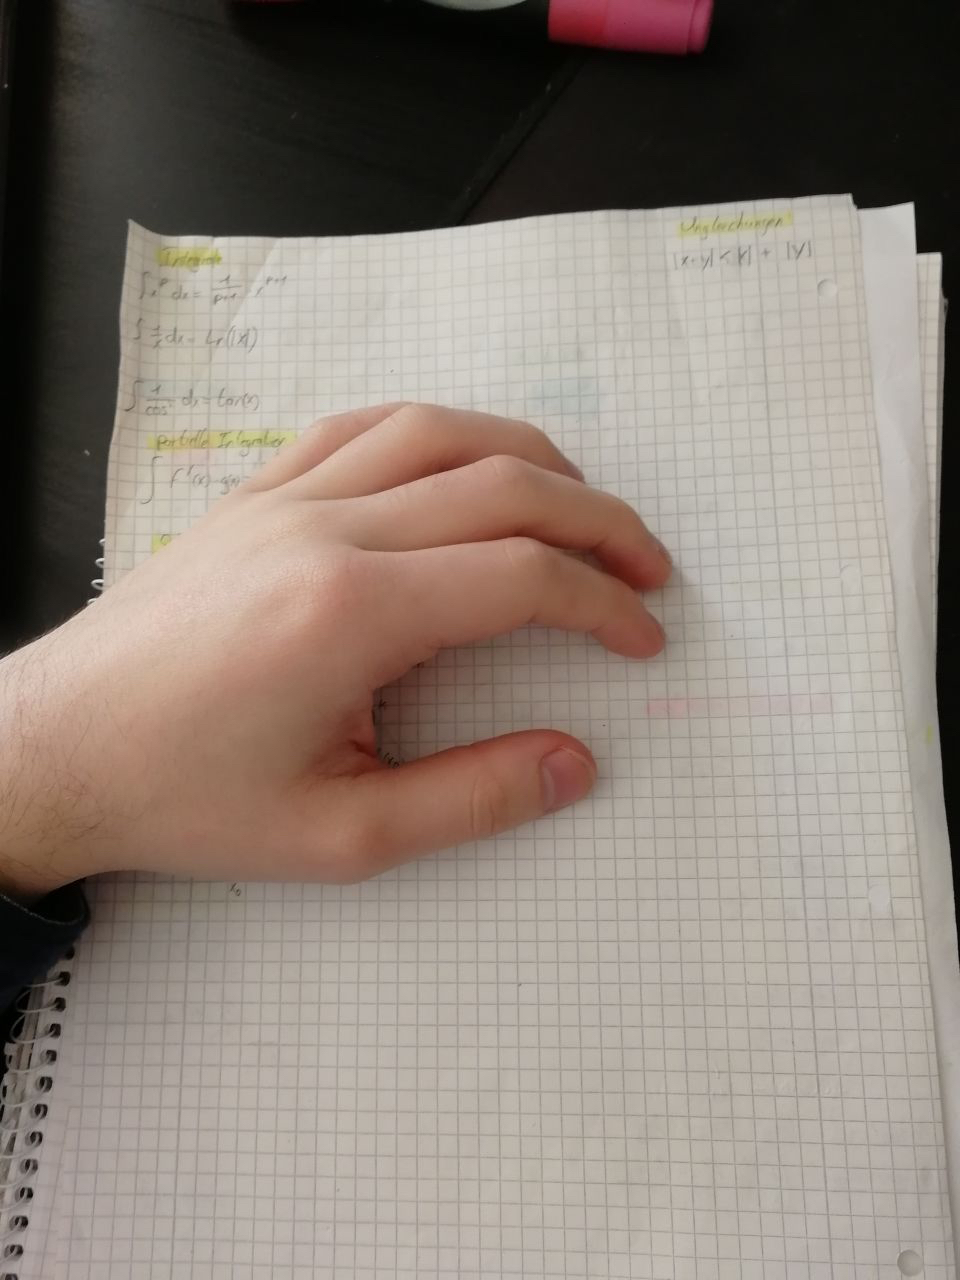 Integrale
∫ x^p dx = 1/(p+1) · x^(p+1)
∫ 1/x dx = Ln(|x|)
∫ 1/cos² dx = tan(x)
partielle Integration
∫ f'(x) · g(x) =
x₀
Ungleichungen
|x+y| < |x| + |y|